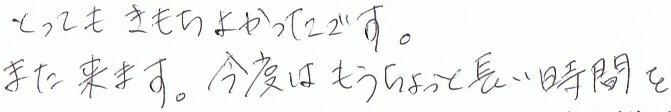 とってもきもちよかったです。
また来ます。今度はもうちょっと長い時間を